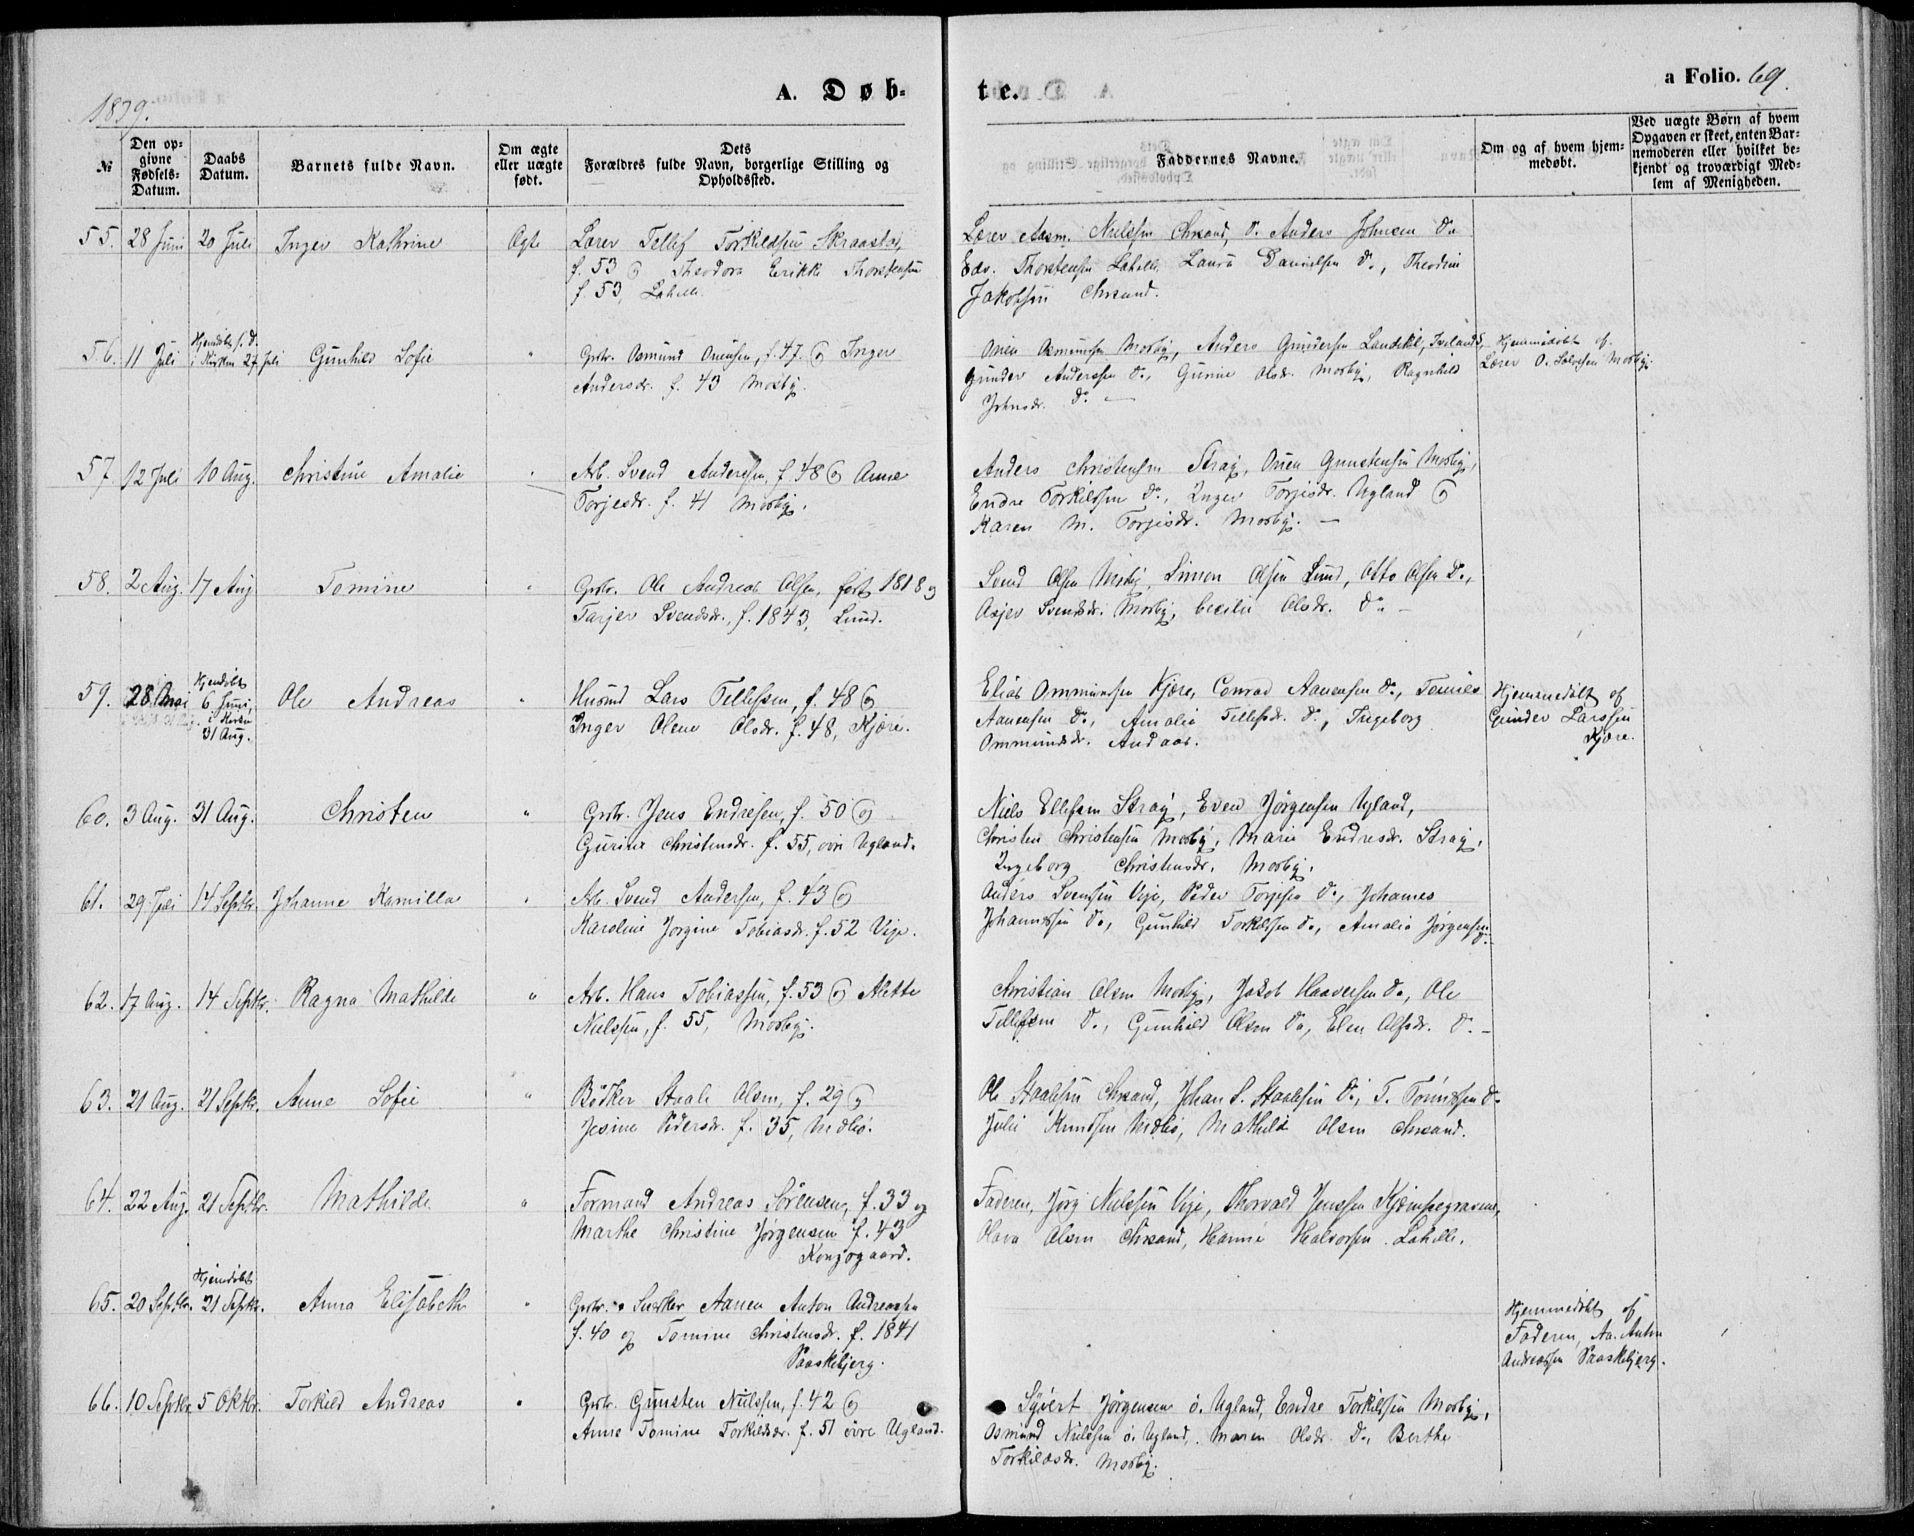 1879.
A. Døb-
te.
a Folio. 69.
№
Den op-
givne
Fødsels-
Datum.
Daabs
Datum.
Barnets fulde Navn.
Om ægte
eller uægte
født.
Dets
Forældres fulde Navn, borgerlige Stilling og
Opholdssted.
Faddernes Navne.
Om og af hvem hjem-
medøbt.
Ved uægte Børn af hvem
Opgaven er skeet, enten Bar-
nemoderen eller hvilket be-
kjendt og troværdigt Med-
lem af Menigheden.
55. 28 Juni 20 Juli Inger Kathrine Ægte Lærer Tellef Torkildsen Skraastad,
f. 53 og Theodora Erikke Thorstensen
f. 53, Lahelle.
Lærer Aasm. Nielsen Chrsand, Do. Anders Johnsen Do
Edv. Thorstensen Lahelle, Laura Danielsen Do., Theodine
Jakobsen Chrsand.
56. 11 Juli Hjemdøbt s. D.
i Kirken 27 Juli Gunhild Sofie " Grbr. Osmund Onensen, f. 47 og Inger
Andersdr. f. 43 Mosby.
Onen Osmundsen Mosby, Anders Gundersen Landekil, Iveland,
Gunder Anderssen Do., Gurine Olsdr. Mosby, Ragnhild
Johnsdr. Do. —
Hjemmedøbt af
Lærer O. Salvesen Mosby.
57. 12 Juli 10 Aug. Christine Amalie " Arb. Svend Anderssen, f. 48 og Anne
Torjesdr. f. 41 Mosby.
Anders Christensen Stray, Onen Gunstensen Mosby,
Endre Torkilssen Do., Inger Torjisdr. Ugland og
Karen M. Torjisdr. Mosby. —
58. 2 Aug. 17 Aug Tomine " Grbr. Ole Andreas Olsen, født 1818 og
Tarjer Svendsdr., f. 1843, Lund.
Svend Olsen Mosby, Simon Olsen Lund, Otto Olsen Do.,
Asjer Svendsdr. Mosby, Cecilie Olsdr. Do. —
59. 28 Mai Hjemdøbt
6 Juni,
i Kirken
31 Aug. Ole Andreas " Husmd Lars Tellefsen, f. 48 og
Inger Olene Olsdr. f. 48, Kjære.
Elias Ommundsen Kjære, Conrad Aanensen Do., Tønnes
Aanensen Do., Amalie Tellefsdr. Do., Ingeborg
Ommundsdr. Andaas.
Hjemmedøbt af
Gunder Larssen
Kjære.
60. 3 Aug. 31 Aug. Christen " Grbr. Jens Endresen, f. 50 og
Gurine Christensdr. f. 55, øvre Ugland.
Niels Ellefsen Stray, Even Jørgensen Ugland,
Christen Christensen Mosby, Marie Endresdr. Stray,
Ingeborg Christensdr. Mosby.
61. 29 Juli 14 Septbr. Johanne Kamilla " Arb. Svend Andersen, f. 43 og
Karoline Jorgine Tobiasdr. f. 52 Vije.
Anders Svensen Vije, Peder Torjesen Do., Johannes
Johannessen Do., Gunhild Torkilssen Do., Amalie Jørgensen
Do. —
62. 17 Aug. 14 Septbr. Ragna Mathilde " Arb. Hans Tobiassen, f. 53 og Alette
Nielssen, f. 55, Mosby.
Christian Olsen Mosby, Jakob Haaversen Do., Ole
Tellefsen Do., Gunhild Olsen Do, Elen Olsdr. Do. —
63. 21 Aug. 21 Septbr. Anne Sofie " Bødker Staale Olsen, f. 29 og
Jesine Pedersdr. f. 35,
Ole Staalesen Chrsand, Johan S. Staalesen Do., T. Tønnessen Do
Julie Knudsen, Mathilde Olsen Chrsand.
64. 22 Aug. 21 Septbr. Mathilde " Formand Andreas Sørensen, f. 33 og
Marthe Christine Jørgensen f. 43
Kongsgaard.
Faderen, Jørg Nielssen Vije, Thorvald Jenssen Kjæmpegravene,
Olava Olsen Chrsand, Hanne Halvorsen Lahelle.
65. 20 Septbr. Hjemdøbt
21 Septbr. Anna Elisabeth " Grbr. Snekker Aanen Anton Andreassen
f. 40 og Tomine Christensdr. f. 1841
Paaskebjerg.
Hjemmedøbt af
Faderen, Aa. Anton
Andreassen Paaskebjerg.
66. 10 Septbr. 5 Oktbr. Torkild Andreas " Grbr. Gunsten Nielssen, f. 42 og
Anne Tomine Torkildsdr. f. 51 øvre Ugland.
Syvert Jørgensen ø. Ugland, Endre Torkilssen Mosby,
Osmund Nielssen ø. Ugland, Maren Olsdr. Do., Berthe
Torkildsdr. Mosby.